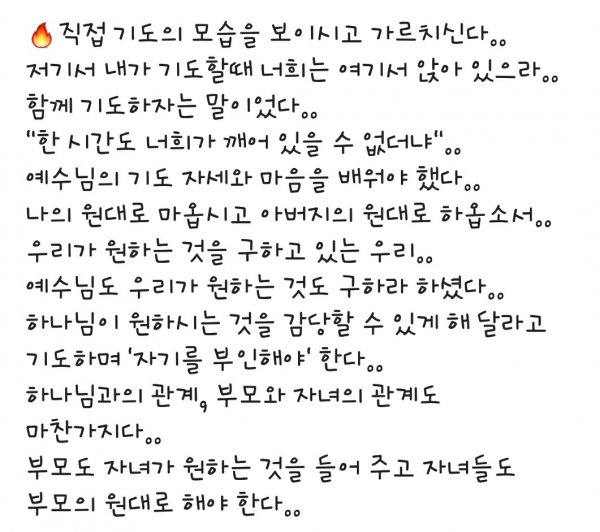 🔥직접 기도의 모습을 보이시고 가르치신다..
저기서 내가 기도할때 너희는 여기서 앉아 있으라..
함께 기도하자는 말이었다..
"한 시간도 너희가 깨어 있을 수 없더냐"..
예수님의 기도 자세와 마음을 배워야 했다..
나의 원대로 마옵시고 아버지의 원대로 하옵소서..
우리가 원하는 것을 구하고 있는 우리..
예수님도 우리가 원하는 것도 구하라 하셨다..
하나님이 원하시는 것을 감당할 수 있게 해 달라고
기도하며 '자기를 부인해야' 한다..
하나님과의 관계, 부모와 자녀의 관계도
마찬가지다..
부모도 자녀가 원하는 것을 들어 주고 자녀들도
부모의 원대로 해야 한다..